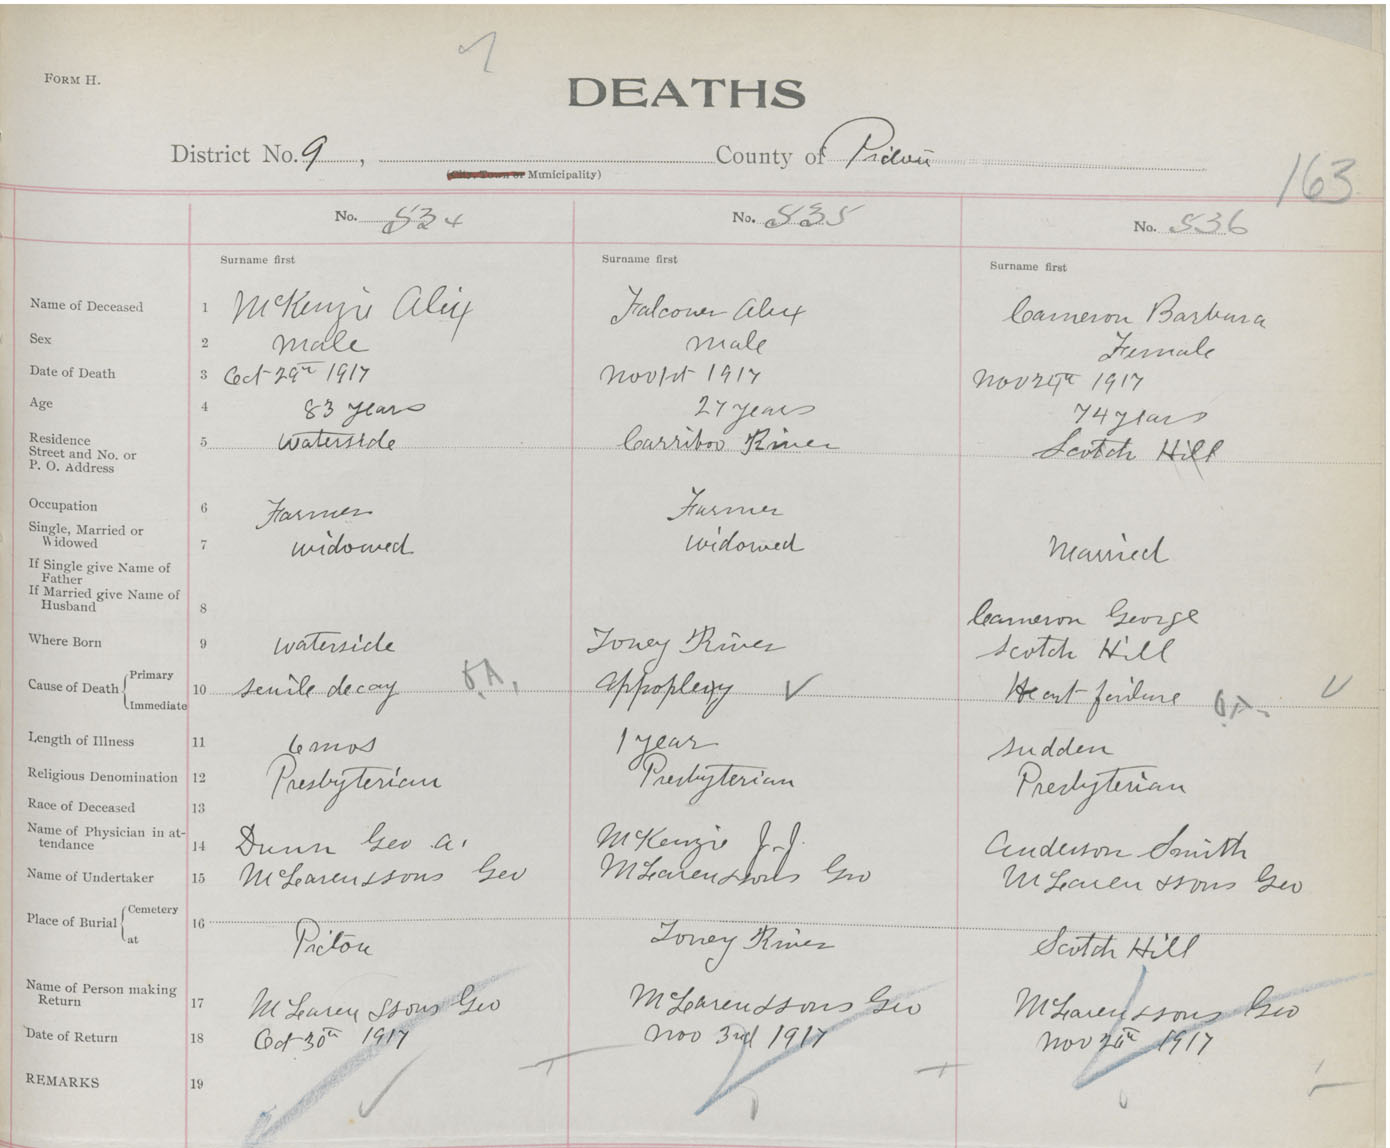 FORM H.
DEATHS
District No. 9, County of Pictou
(City, Town or Municipality)
163
No. 534 No. 535 No. 536
Surname first Surname first Surname first
Name of Deceased 1 McKenzie Alex Falconer Alex Cameron Barbara
Sex 2 male male Female
Date of Death 3 Oct 29th 1917 Nov 1st 1917 Nov 24th 1917
Age 4 83 years 27 years 74 years
Residence 5 waterside Carriboo River Scotch Hill
Street and No. or
P. O. Address
Occupation 6 Farmer Farmer
Single, Married or
Widowed 7 widowed widowed Married
If Single give Name of
Father
If Married give Name of
Husband 8 Cameron George
Where Born 9 waterside Toney River Scotch Hill
Cause of Death Primary
Immediate 10 senile decay O.A. appoplexy Heart failure O.A.
Length of Illness 11 6 mos 1 year sudden
Religious Denomination 12 Presbyterian Presbyterian Presbyterian
Race of Deceased 13
Name of Physician in at-
tendance 14 Dunn Geo. a. McKenzie J.J. Anderson Smith
Name of Undertaker 15 McLaren & sons Geo McLaren & sons Geo McLaren & sons Geo
Place of Burial Cemetery 16
at Pictou Toney River Scotch Hill
Name of Person making
Return 17 McLaren & sons Geo McLaren & sons Geo McLaren & sons Geo
Date of Return 18 Oct 30th 1917 Nov 3rd 1917 Nov 26th 1917
REMARKS 19